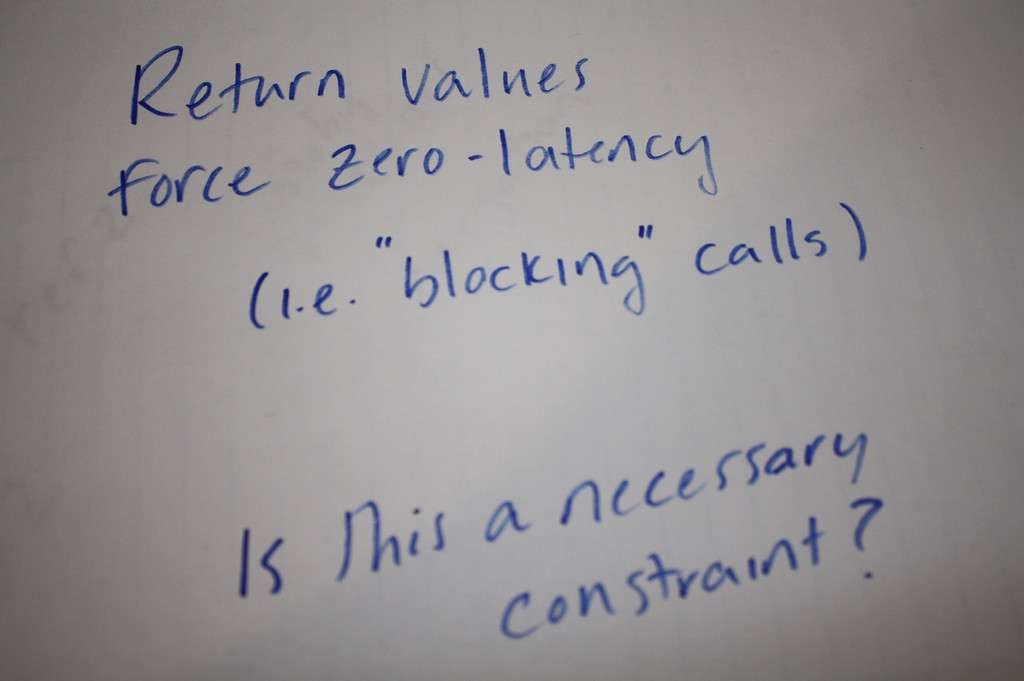 Return values
force zero-latency
(i.e. "blocking" calls)
Is this a necessary
constraint?